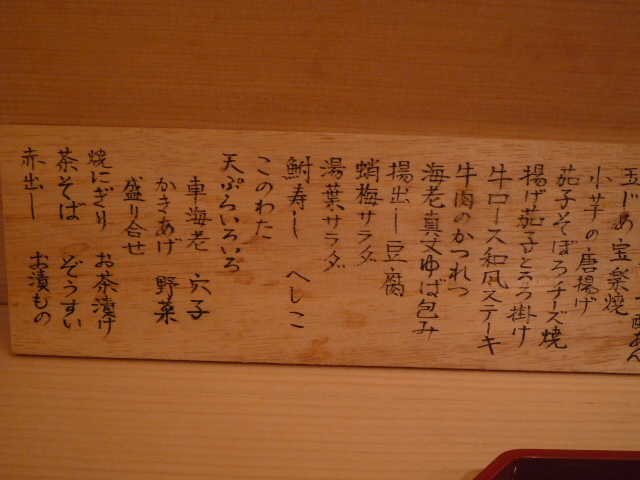 玉じめ宝楽焼
小芋の唐揚げ
茄子そぼろチーズ焼
揚げ茄子とろろ掛け
牛ロース和風ステーキ
牛肉のかつれつ
海老真丈ゆば包み
揚出し豆腐
蛸梅サラダ
湯葉サラダ
鮒寿し へしこ
このわた
天ぷらいろいろ
車海老 穴子
かきあげ 野菜
盛り合せ
焼にぎり お茶漬け
茶そば ぞうすい
赤出し お漬もの